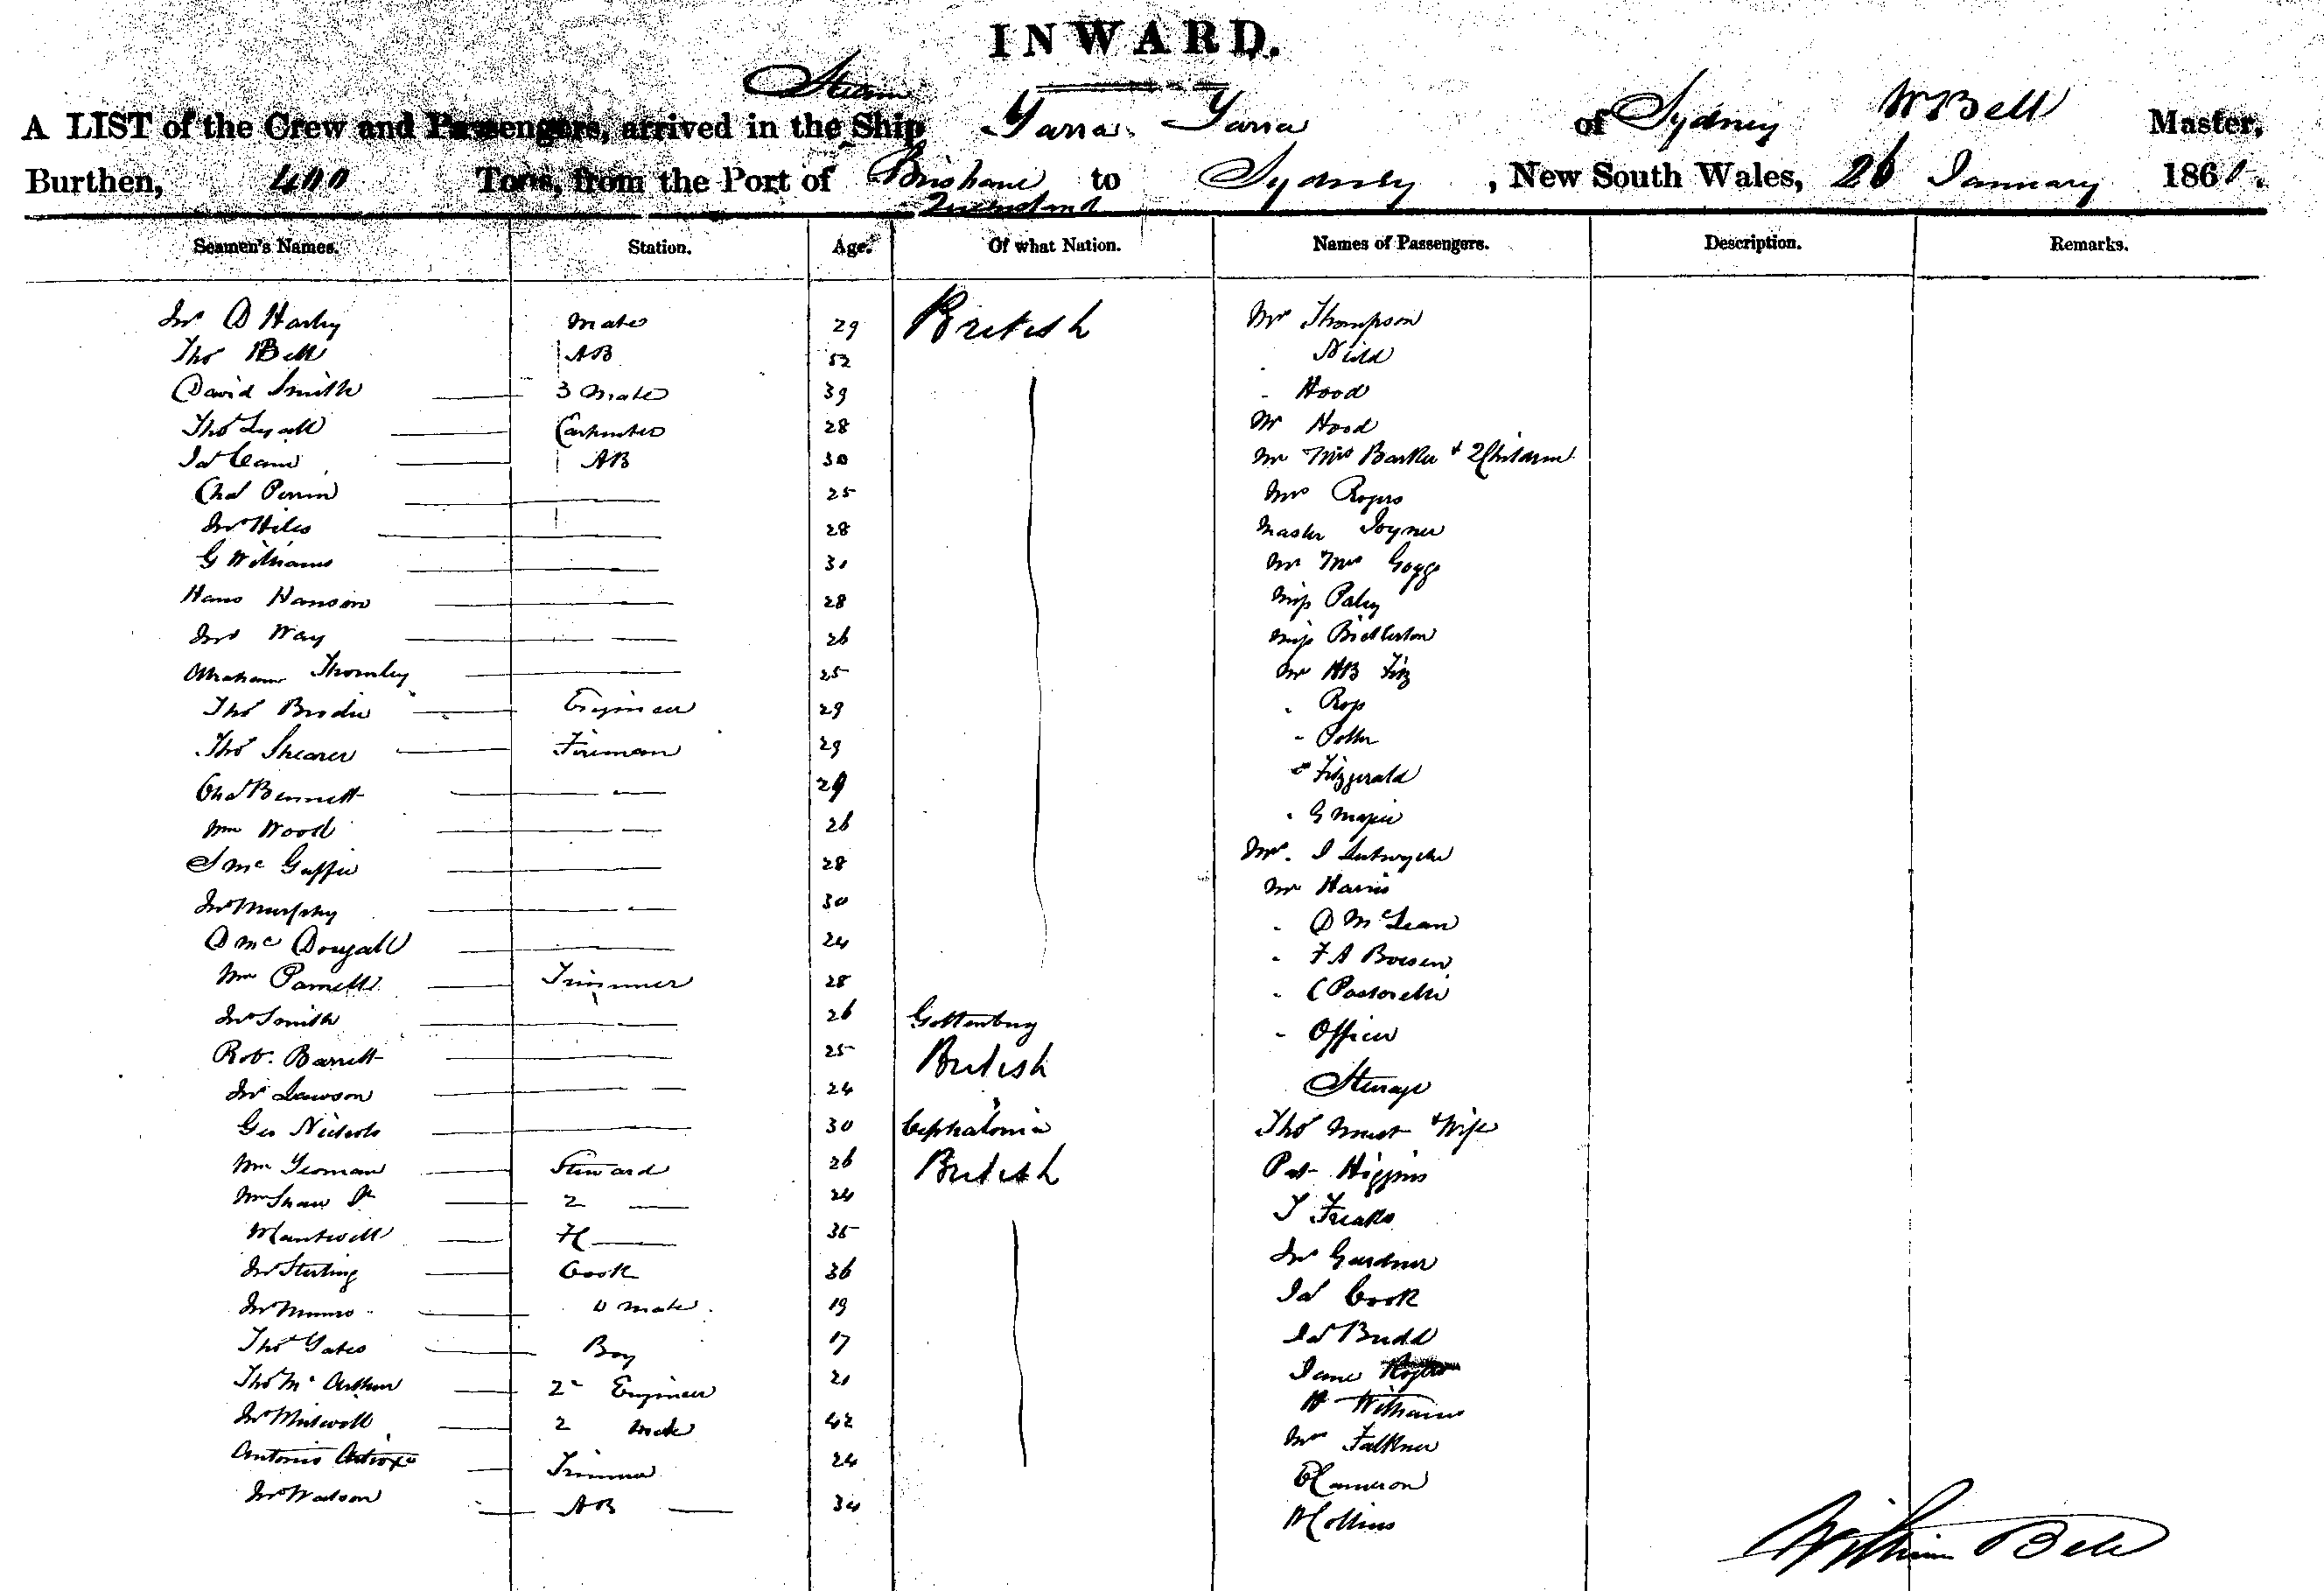 INWARD.
Steam
A LIST of the Crew and Passengers, arrived in the Ship Yarra Yarra of Sydney W Bell Master,
Burthen, 400 Tons, from the Port of Brisbane to Sydney, New South Wales, 26 January 186
Queensland
Seamen's Names. Station. Age. Of what Nation. Names of Passengers. Description. Remarks.
Jno D Harby Mate 29 British Mr Thompson
Thos Bell AB 52 Nield
David Smith 3 Mate 39 Hood
Thos Lyall Carpenter 28 Mr Hood
Jas AB 30 Mr Mrs Barker + 2 Children
Chas Perrin 25 Mrs Rogers
Jno Hiles 28 Master Joyner
G Williams 31 Mr + Mrs Gogg
Hans Hanson 28 Miss Paley
Jno Way 26 Miss Bickerton
Abraham Thornley 25 Mr HB Fitz
Thos Brodie Engineer 29 " Ross
Thos Shearer Fireman 29 " Potter
Chas Bennett 29 " Fitzgerald
Wm Wood 26 " G
S McGuffie 28 Mr. Lutwyche
Jno Murphy 30 Mr Harris
D McDougall 24 " D McLean
Wm Parnell Trimmer 28 " F A Bowen
Jno Smith 26 Gottenburg " C Pastorelli
Rob. Barrett 25 British " Officer
Jno Lawson 24 Steerage
Geo Nichols 30 Cephalonia Thos Must + Wife
Wm Yeoman Steward 26 British Pat Higgins
Wm Shaw 2 24 J Freake
M Cantwell 35 Jno Gardner
Jno Sterling Cook 36 Jas Cook
Jno Munro Mate 19 Jas Budd
Thos Yates Boy 17 Jane Rogers
Thos McArthur 2 Engineer 21 H Williams
Jno 2 Mate 42 Mr Falkner
Antonio Trimmer 24 Cameron
Jno Watson AB 34 W Collins
William Bell